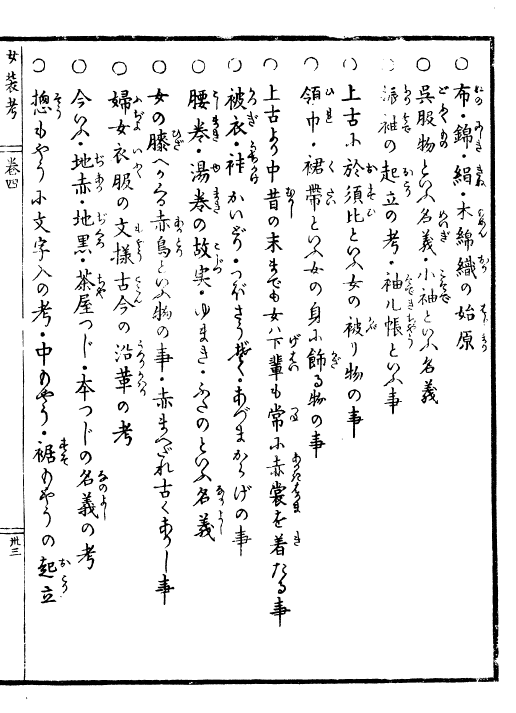 〇布・錦・絹・木綿織の始原
〇呉服物といふ名義・小袖といふ名義
〇振袖の起立の考・袖几帳といふ事
〇上古に於須比といふ女の被り物の事
〇領巾・裙帯といふ女の身に飾る物の事
上古より中昔の末までも女ハ下輩も常に赤裳を着たる事
〇被衣・袿かいどり・つぼさうぞく・あづまからげの事
〇腰巻・湯巻の故実・ゆまき・ふたのといふ名義
女の膝へかゝる赤鳥といふ物の事・赤まへだれ古くありし事
〇婦女衣服の文様古今の沿革の考
〇今いふ・地赤・地黒・茶屋つじ・本つじの名義の考
〇惣もやうに文字入の考・中もやう・裾もやうの起立
女装考
巻四
卅三